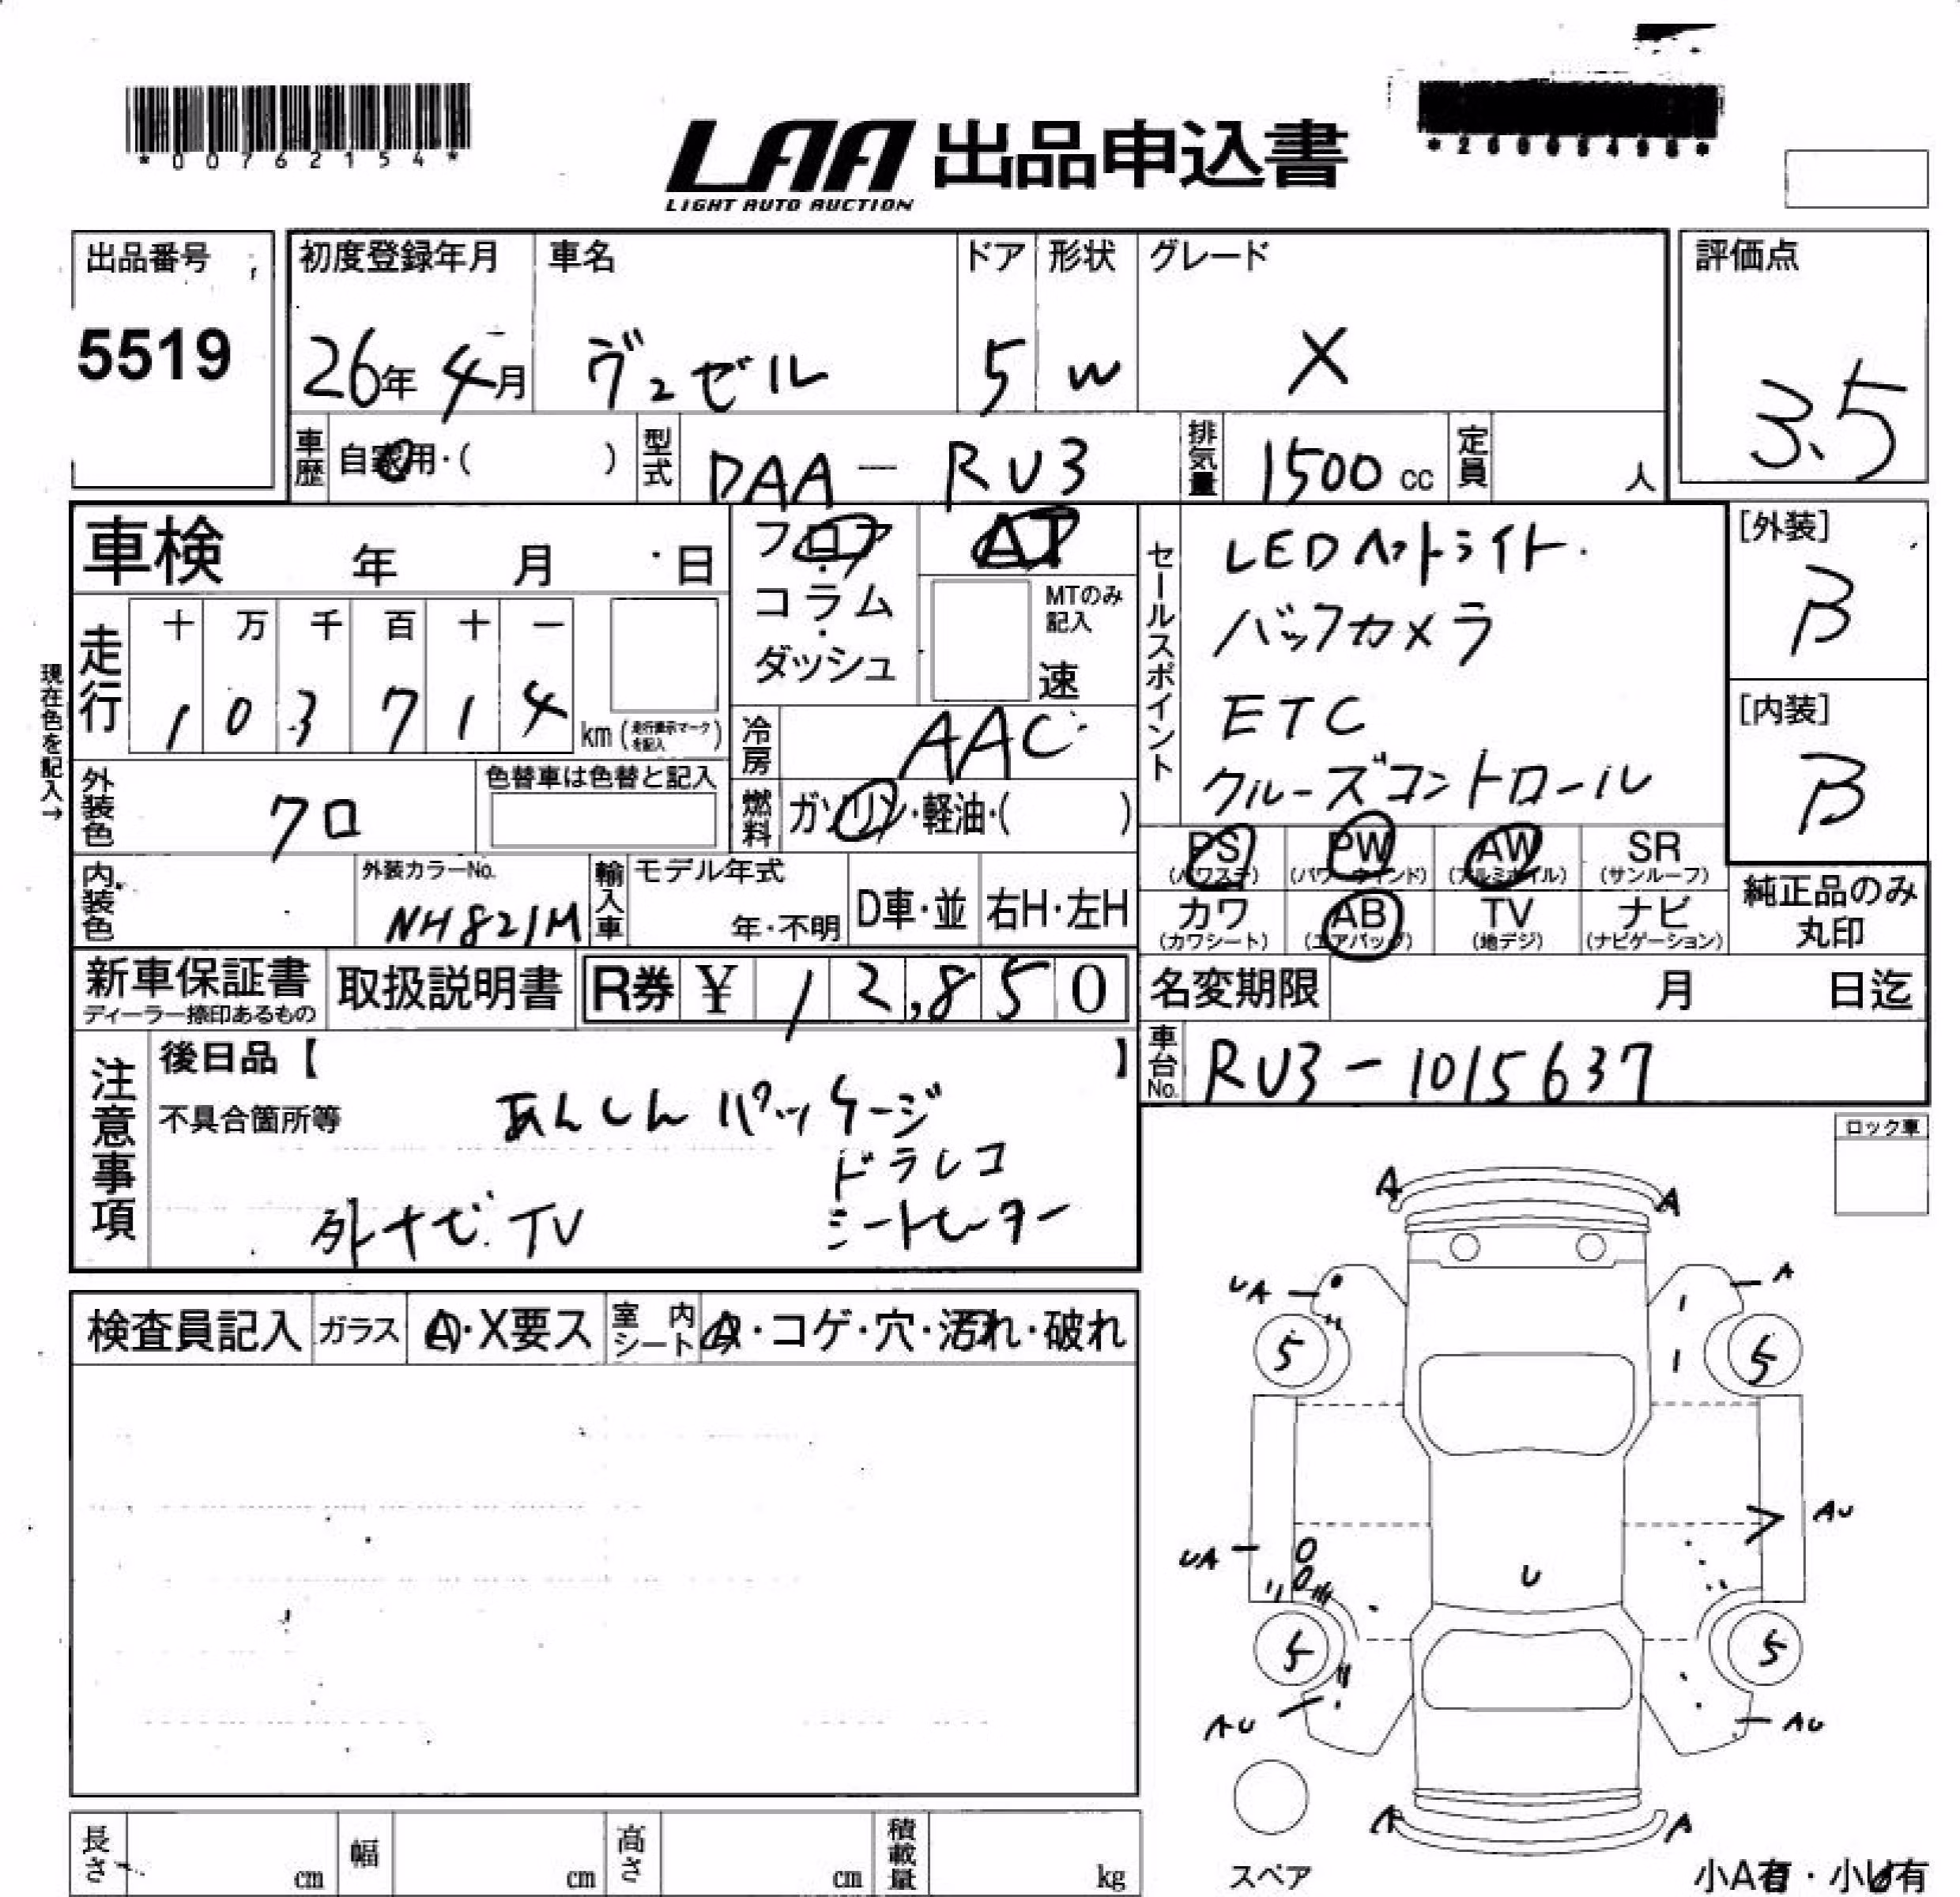 *00762154*
LAA 出品申込書
LIGHT AUTO AUCTION
出品番号
5519
初度登録年月
26年 4月
車名
ヴェゼル
ドア
5
形状
W
グレード
X
評価点
3.5
車歴
自家用・( )
型式
DAA-RU3
排気量
1500 cc
定員
人
車検 年 月 日
フロア・コラム・ダッシュ
AT
MTのみ記入
速
セールスポイント
LEDヘッドライト
バックカメラ
ETC
クルーズコントロール
[外装]
B
[内装]
B
現在色を記入→
走行
十 万 千 百 十 一
1 0 3 7 1 4
km (走行表示マークを記入)
冷房
AAC
外装色
クロ
色替車は色替と記入
燃料
ガソリン・軽油・( )
内装色
外装カラーNo.
NH821M
輸入車
モデル年式
年・不明
D車・並
右H・左H
PS (パワステ)
PW (パワーウインド)
AW (アルミホイル)
SR (サンルーフ)
カワ (カワシート)
AB (エアバッグ)
TV (地デジ)
ナビ (ナビゲーション)
純正品のみ丸印
新車保証書
ディーラー捺印あるもの
取扱説明書
R券 ¥ 12,850
名変期限 月 日迄
車台No.
RU3-1015637
注意事項
後日品【 】
不具合箇所等
あんしんパッケージ
ドラレコ
外ナビ TV
シートヒーター
ロック車
検査員記入
ガラス
A・X要ス
室内シート
A・コゲ・穴・汚れ・破れ
A A
UA A
5 5
AU
UA
U
5 5
AU AU
A A
スペア
小A有・小U有
長さ cm
幅 cm
高さ cm
積載量 kg